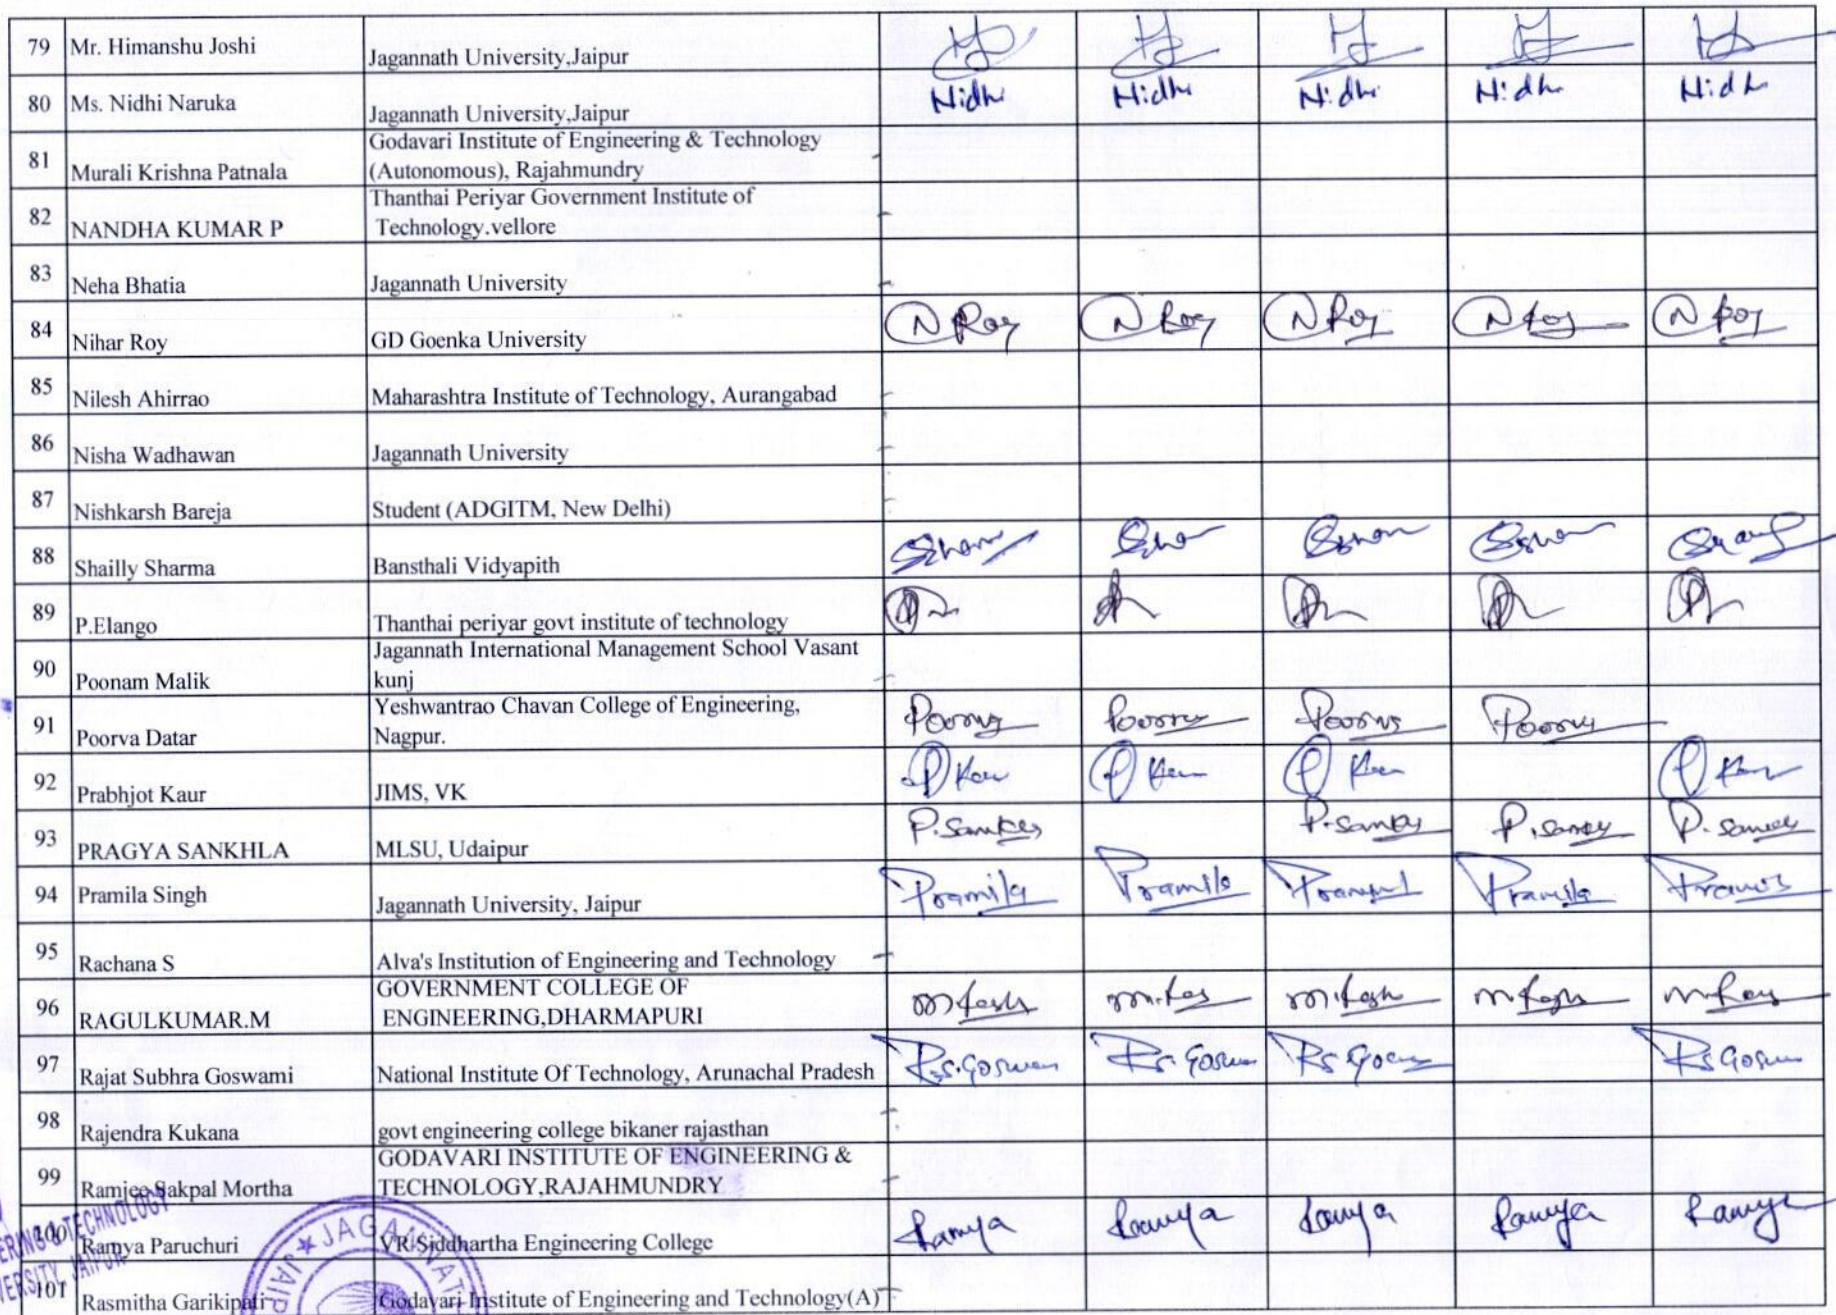 79 Mr. Himanshu Joshi Jagannath University,Jaipur
80 Ms. Nidhi Naruka Jagannath University,Jaipur Nidhi Nidhi Nidhi Nidhi Nidhi
81 Murali Krishna Patnala Godavari Institute of Engineering & Technology
(Autonomous), Rajahmundry -
82 NANDHA KUMAR P Thanthai Periyar Government Institute of
Technology.vellore -
83 Neha Bhatia Jagannath University -
84 Nihar Roy GD Goenka University N Roy N Roy N Roy N Roy N Roy
85 Nilesh Ahirrao Maharashtra Institute of Technology, Aurangabad -
86 Nisha Wadhawan Jagannath University -
87 Nishkarsh Bareja Student (ADGITM, New Delhi) -
88 Shailly Sharma Bansthali Vidyapith
89 P.Elango Thanthai periyar govt institute of technology
90 Poonam Malik Jagannath International Management School Vasant
kunj -
91 Poorva Datar Yeshwantrao Chavan College of Engineering,
Nagpur. Poorva Poorva Poorva Poorva
92 Prabhjot Kaur JIMS, VK
93 PRAGYA SANKHLA MLSU, Udaipur
94 Pramila Singh Jagannath University, Jaipur Pramila Pramila Pramila
95 Rachana S Alva's Institution of Engineering and Technology -
96 RAGULKUMAR.M GOVERNMENT COLLEGE OF
ENGINEERING,DHARMAPURI
97 Rajat Subhra Goswami National Institute Of Technology, Arunachal Pradesh
98 Rajendra Kukana govt engineering college bikaner rajasthan -
99 Ramjee Sakpal Mortha GODAVARI INSTITUTE OF ENGINEERING &
TECHNOLOGY,RAJAHMUNDRY -
100 Ramya Paruchuri VR Siddhartha Engineering College Ramya Ramya Ramya Ramya Ramya
101 Rasmitha Garikipati Godavari Institute of Engineering and Technology(A) -
TECHNOLOGY
JAIPUR